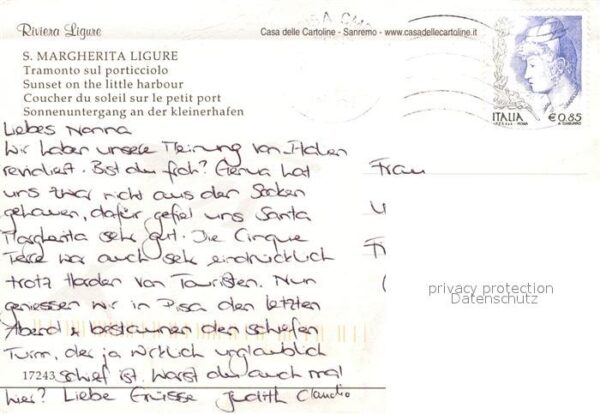 Riviera Ligure
Casa delle Cartoline - Sanremo - www.casadellecartoline.it
S. MARGHERITA LIGURE
Tramonto sul porticciolo
Sunset on the little harbour
Coucher du soleil sur le petit port
Sonnenuntergang an der kleinerhafen
ITALIA €0,85
Liebes Nonna
Wir haben unsere Meinung von Italien
revidiert. Bist du froh? Genua hat
uns zwar nicht aus den Socken
gehauen, dafür gefiel uns Santa
Margherita sehr gut. Die Cinque
Terre war auch sehr eindrücklich
trotz Horden von Touristen. Nun
geniessen wir in Pisa den letzten
Abend & bestaunen den schiefen
Turm, der ja wirklich unglaublich
17243 schief ist. Warst du auch mal
hier? Liebe Grüsse Judith Claudio
Frau
privacy protection
Datenschutz